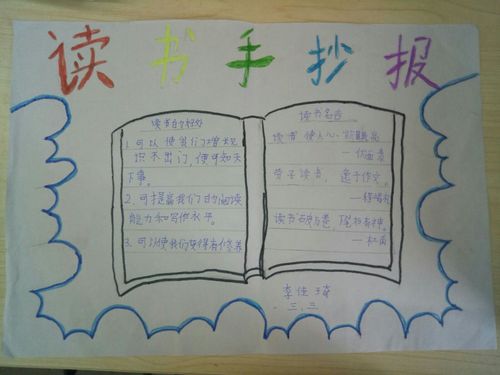 读书手抄报
读书的好处
1.可以使我们增长知
识不出门,便可知天
下事。
2.可提高我们的阅读
能力和写作水平。
3.可以使我们变得有修养
读书名言
读书使人心
善于读书,
善于作文。
读书破万卷,下笔有神。
—杜甫
李佳琦
三.三